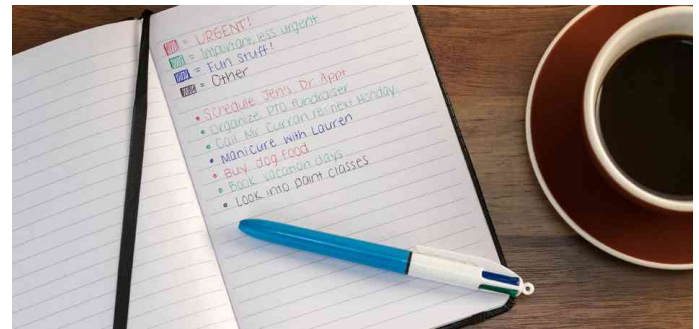 = URGENT!
= Important, less urgent
= Fun stuff!
= Other
• Schedule Jen's Dr Appt
• Organize PTO fundraiser
• Call Mr Curran re: next Monday
• Manicure with Lauren
• Buy dog food
• Book vacation days
• Look into paint classes